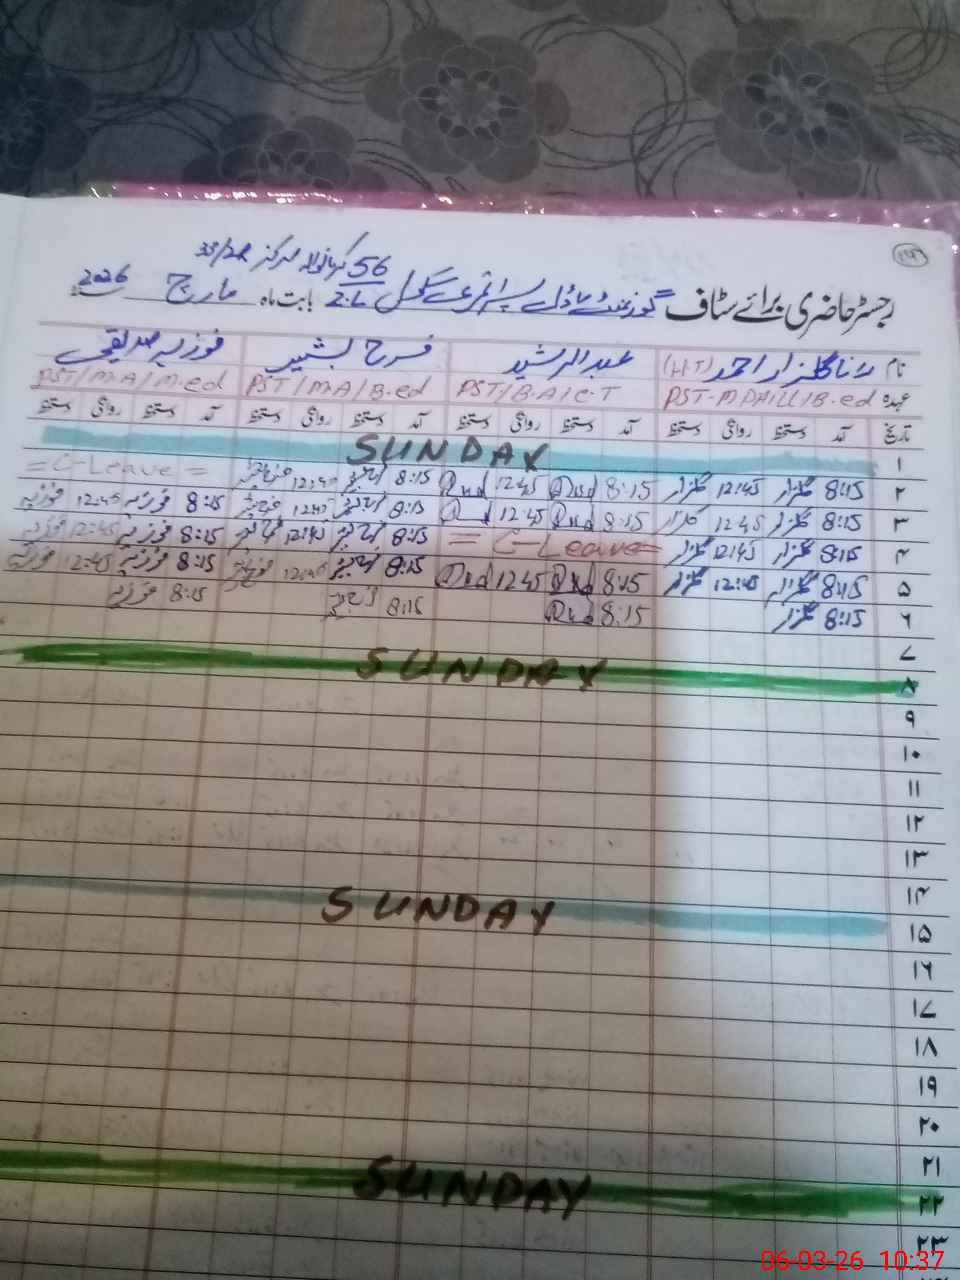 147
56 گرمانوالہ مرکز 33/2R
رجسٹر حاضری برائے سٹاف گورنمنٹ ماڈل پرائمری سکول 2-L بابت ماہ مارچ 2026
نام رانا گلزار احمد (H.T) عبدالرشید فرح بشیر فوزیہ صدیقی
عہدہ PST/B.A/C.T PST/M.A/B.ed PST/M.A/M.ed
تاریخ آمد دستخط روانگی دستخط آمد دستخط روانگی دستخط آمد دستخط روانگی دستخط آمد دستخط روانگی دستخط
۱ SUNDAY
۲ 8:15 گلزار 12:45 گلزار 8:15 12:45 8:15 12:45 = C-Leave =
۳ 8:15 گلزار 12:45 گلزار 8:15 12:45 8:15 12:45 8:15 فوزیہ 12:45 فوزیہ
۴ 8:15 گلزار 12:45 گلزار = C-Leave = 8:15 12:45 8:15 فوزیہ 12:45 فوزیہ
۵ 8:15 گلزار 12:45 گلزار 8:15 12:45 8:15 12:45 8:15 فوزیہ 12:45 فوزیہ
۶ 8:15 گلزار 8:15 8:15 8:15 فوزیہ
۷
۸ SUNDAY
۹
۱۰
۱۱
۱۲
۱۳
۱۴
۱۵ SUNDAY
۱۶
۱۷
۱۸
۱۹
۲۰
۲۱
۲۲ SUNDAY
۲۳
06-03-26 10:37